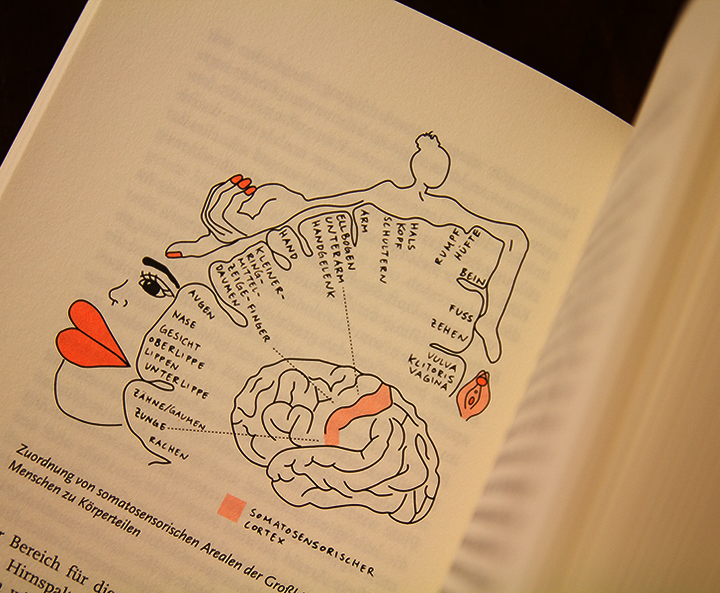 HALS
KOPF
SCHULTERN
ARM
ELLBOGEN
UNTERARM
HANDGELENK
HAND
KLEINER-
RING-
MITTEL-
ZEIGE-FINGER
DAUMEN
RUMPF
HÜFTE
BEIN
FUSS
ZEHEN
VULVA
KLITORIS
VAGINA
AUGEN
NASE
GESICHT
OBERLIPPE
LIPPEN
UNTERLIPPE
ZÄHNE/GAUMEN
ZUNGE
RACHEN
SOMATOSENSORISCHER
CORTEX
Zuordnung von somatosensorischen Arealen der
Menschen zu Körperteilen
Bereich für die